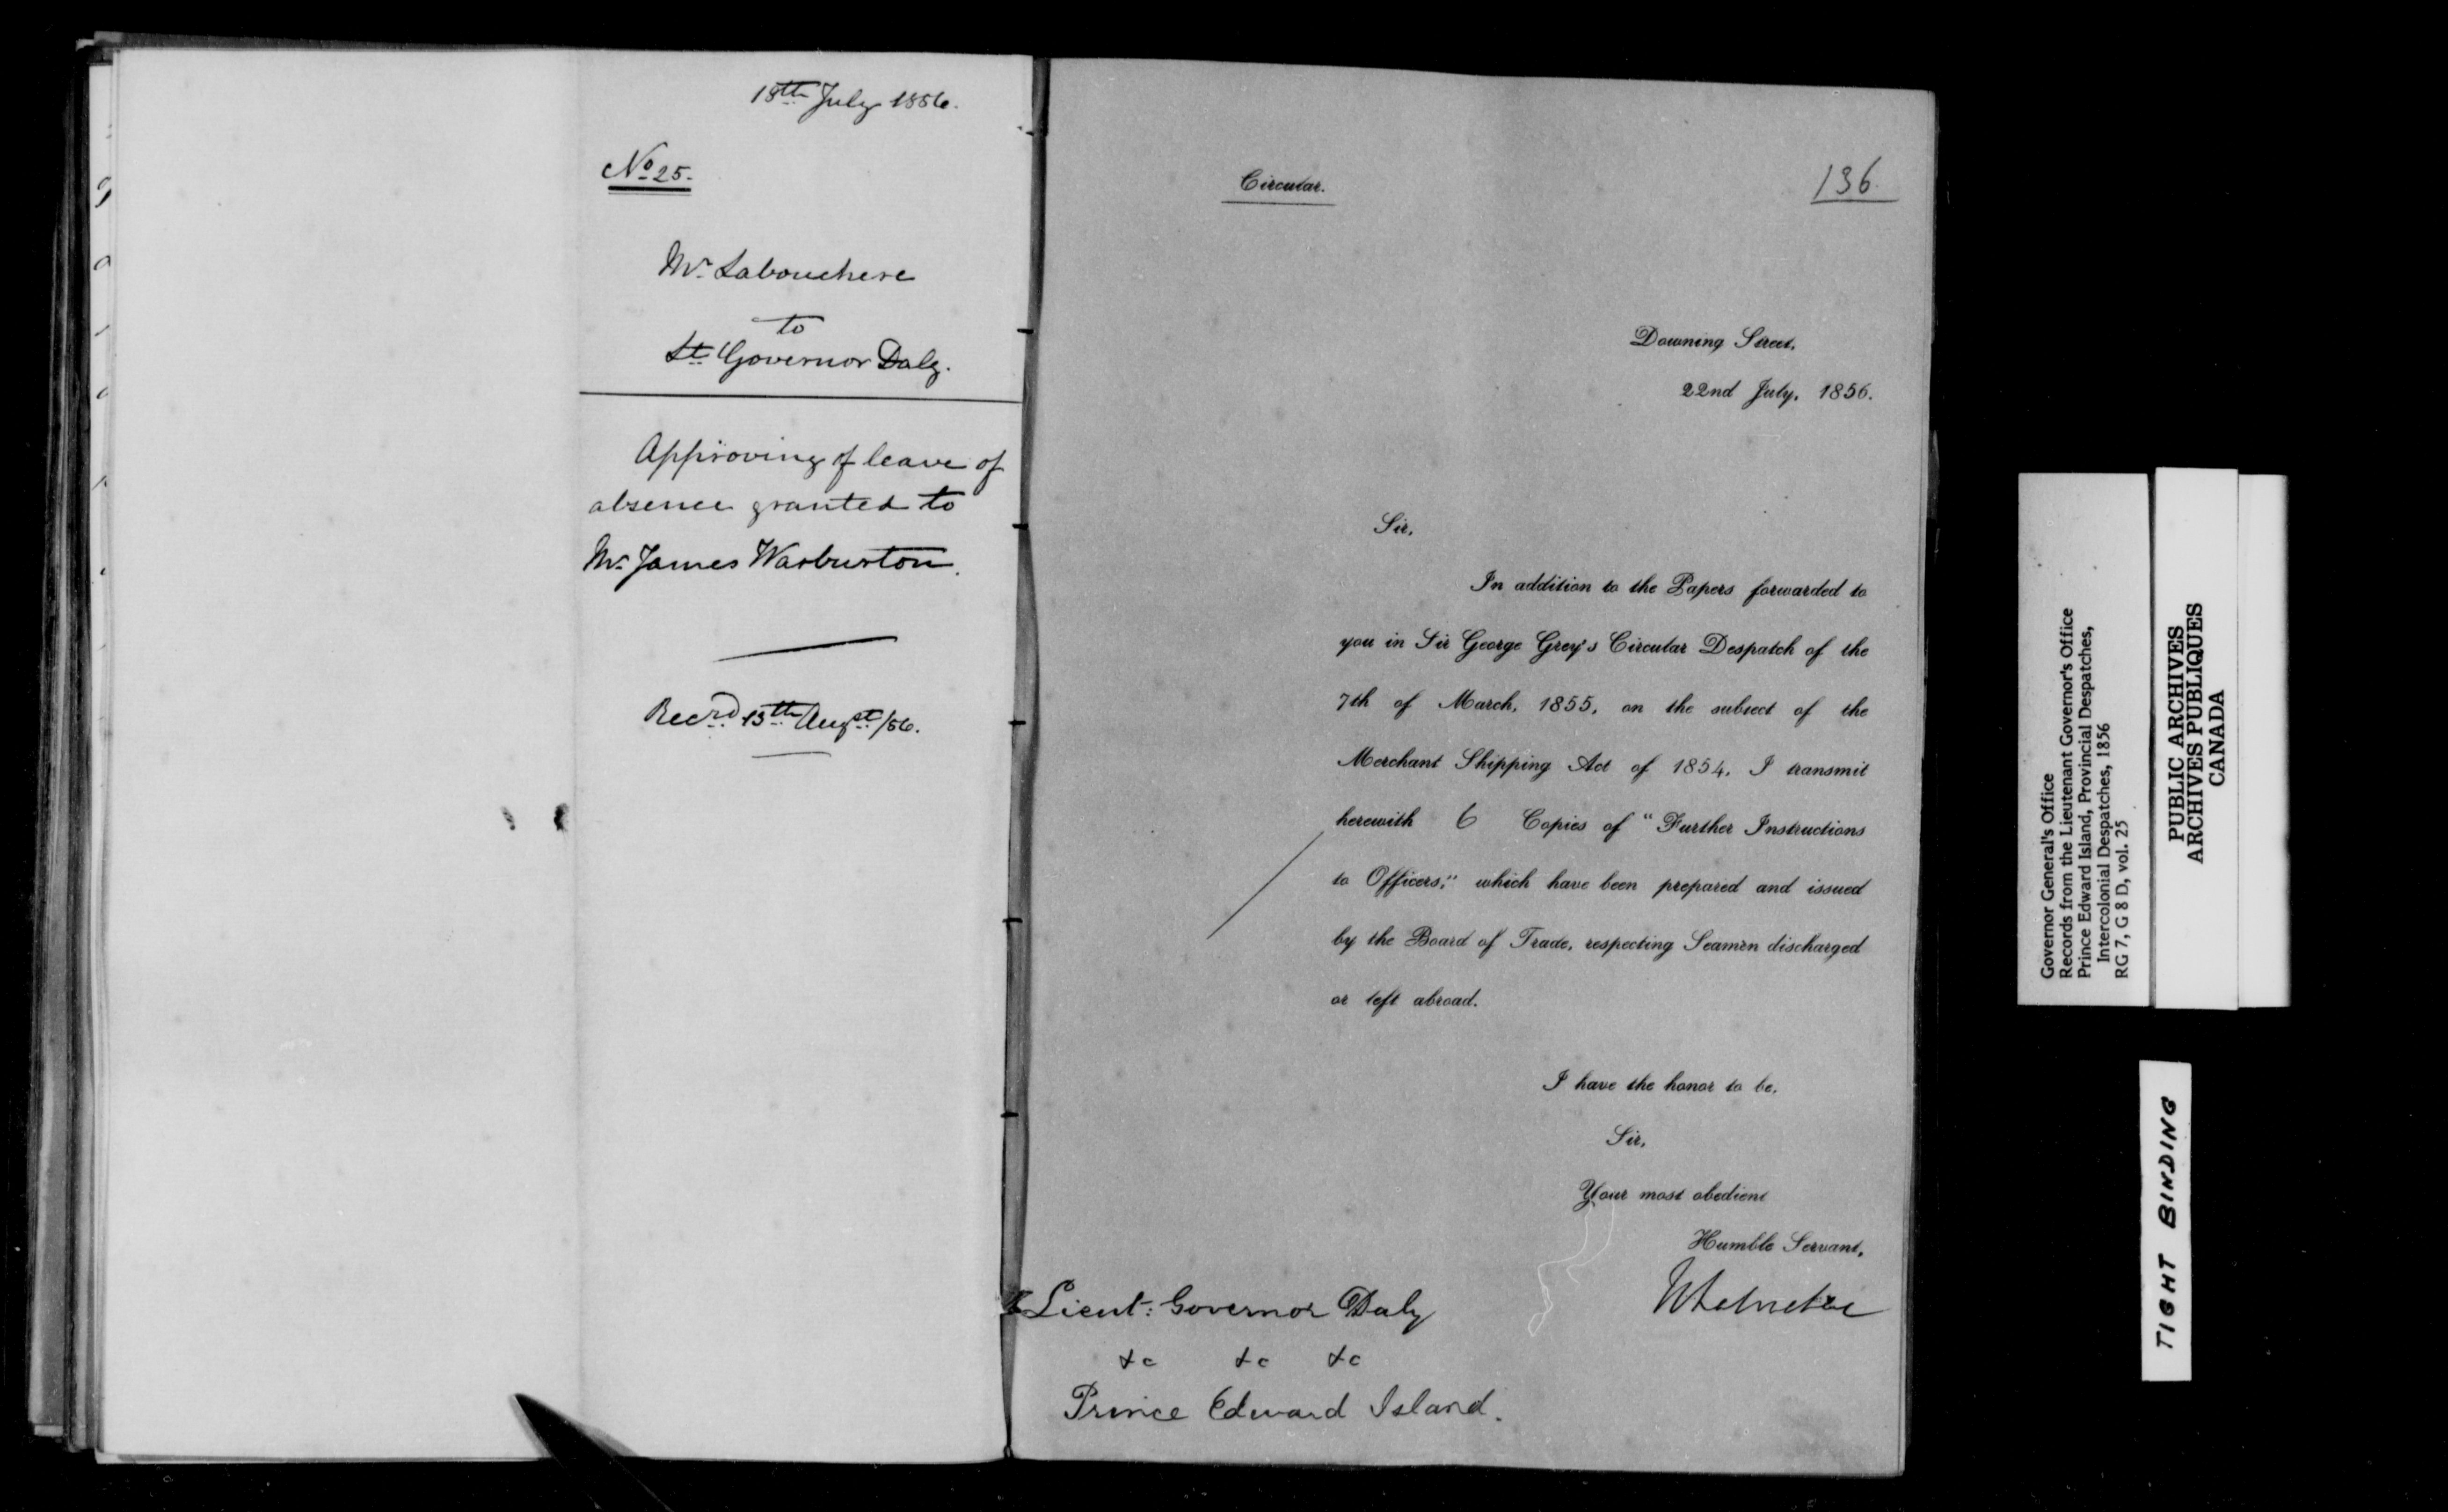 18th July 1856.
No 25.
Mr Labouchere
to
Lt Governor Daly.
Approving of leave of
absence granted to
Mr James Warburton.
Recd 13th Augst/56.
Circular.
136.
Downing Street,
22nd July, 1856.
Sir,
In addition to the Papers forwarded to
you in Sir George Grey's Circular Despatch of the
7th of March, 1855, on the subject of the
Merchant Shipping Act of 1854, I transmit
herewith 6 Copies of "Further Instructions
to Officers," which have been prepared and issued
by the Board of Trade, respecting Seamen discharged
or left abroad.
I have the honor to be,
Sir,
Your most obedient
Humble Servant,
Lieut: Governor Daly
&c &c &c
Prince Edward Island.
Governor General's Office
Records from the Lieutenant Governor's Office
Prince Edward Island, Provincial Despatches,
Intercolonial Despatches, 1856
RG 7, G 8 D, vol. 25
PUBLIC ARCHIVES
ARCHIVES PUBLIQUES
CANADA
TIGHT BINDING